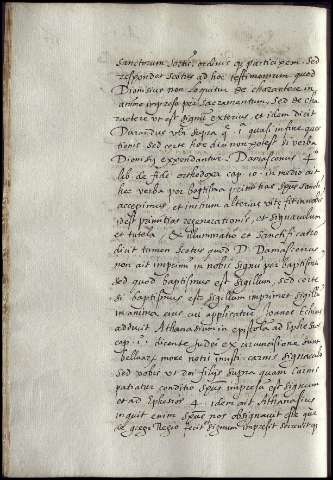 sanctorum sortis ordinis q; participem. sed
respondet scotus ad hoc testimonium quod
Dionisius non loquitur de charactere in
animo impreso per sacramentum. sed de cha
ractere ut est signū exterius et idem dicit
Durandus ubi supra q. 1. qual in fine ques
tionis sed certe hoc dici non potest si verba
Dionisij expendantur. Damascenus 4º
lib. de fide orthodoxa cap. 10. in medio ait
hec verba per baptisma primitias Spus sancti
accepimus et initium alterius vite fit nobis
idest regenerationis, et signaculum
et tutela, et illuminatio et sanctificatio
dicit tamen Scotus quod D. Damascenus
non ait imprimi in nobis signū per baptismū
sed quod baptismus est sigillum, sed certe
si baptismus est sigillum imprimet sigillū
in anima cui applicatur
adducit Athanasium in epistola ad Ephesios
cap. 1. dicente Judei ex circumcisione
more notis carnis signaculo
sed vobis ut dei filijs supra quam carnis
patiatur conditio Spūs impresus est signum
et ad Ephesios 4. idem ait Athanasius
inquit enim Spūs nos obsignavit que
de grege Regio fecit signum impresit